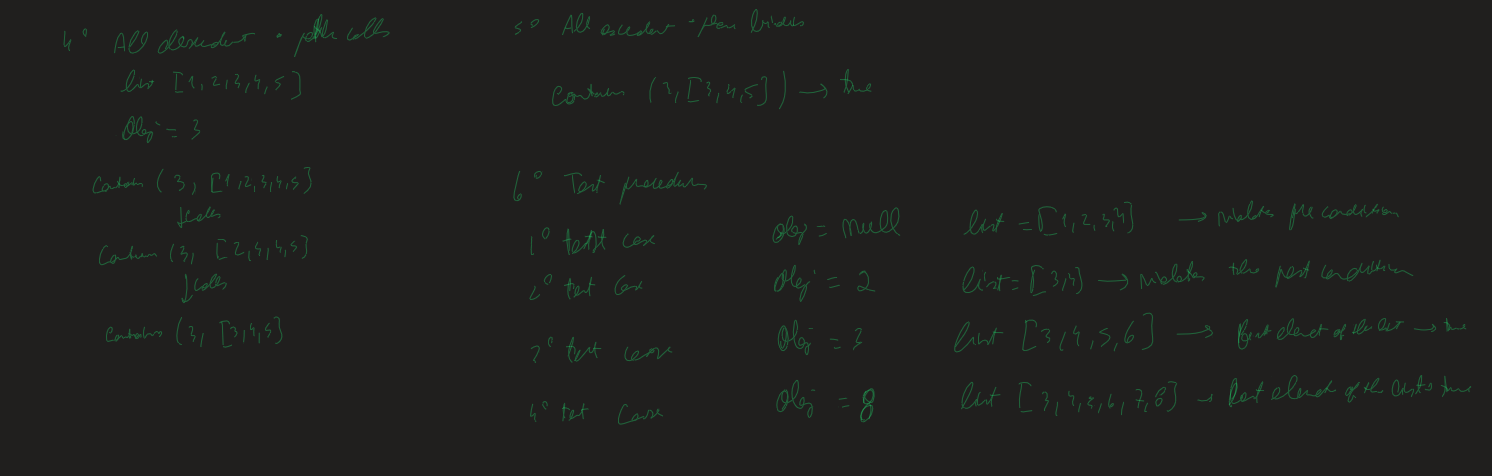 4° All descendent · path calls
list [1,2,3,4,5]
Obj = 3
Contains (3, [1,2,3,4,5]
↓ calls
Contains (3, [2,4,4,5]
↓ calls
Contains (3, [3,4,5]
5° All ascendent ·
Contains (3,[3,4,5]) → true
6° Test procedures
1° test case Obj = null list = [1,2,3,4] → violates pre condition
2° test case Obj = 2 list = [3,4] → violates the post condition
3° test case Obj = 3 list [3,4,5,6] → first element of the list → true
4° test case Obj = 8 list [3,4,5,6,7,8] → element of the list → true